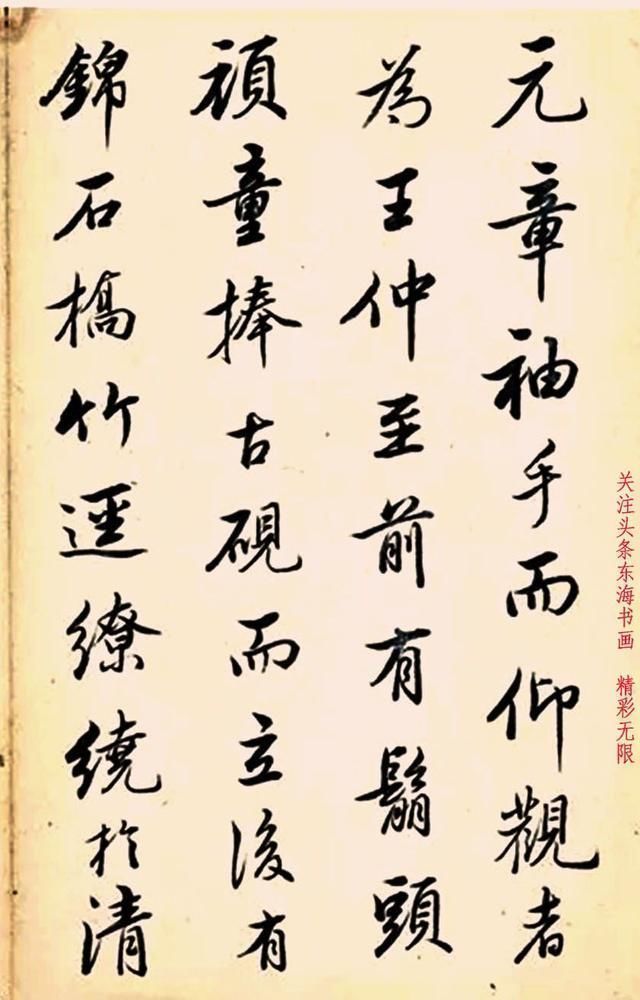 元章袖手而仰觀者
為王仲至前有鬅頭
頑童捧古硯而立後有
錦石橋竹逕繚繞於清
关注头条东海书画 精彩无限